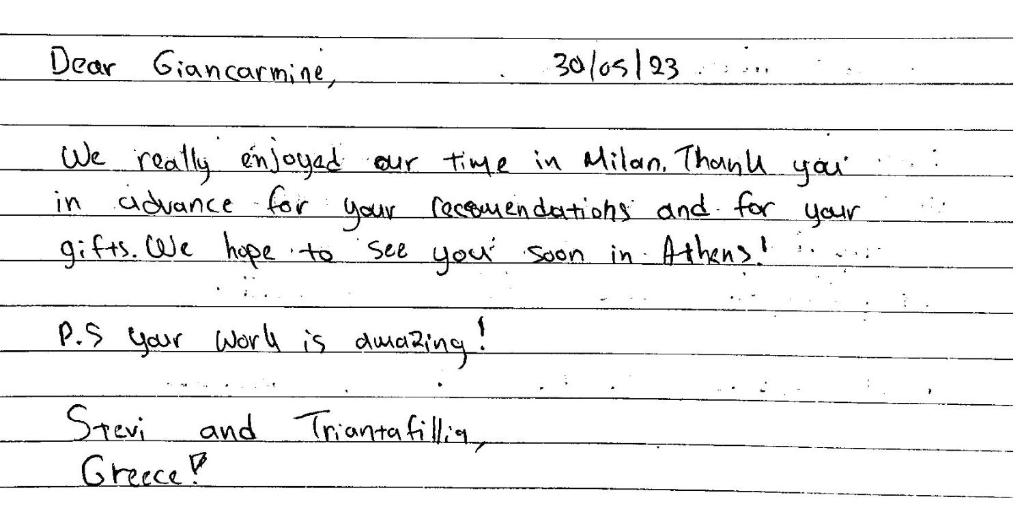 Dear Giancarmine, 30/05/23
We really enjoyed our time in Milan. Thank you
in advance for your recomendations and for your
gifts. We hope to see you soon in Athens!
P.S your work is amazing!
Stevi and Triantafillia,
Greece!